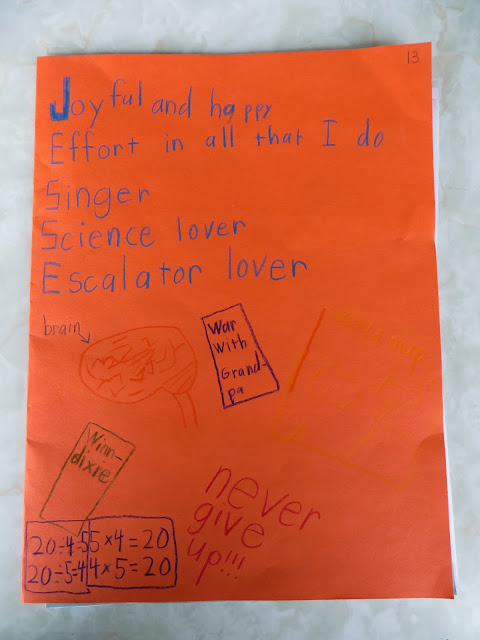 13
Joyful and happy
Effort in all that I do
Singer
Science lover
Escalator lover
brain
War
with
Grand-
pa
Winn-
dixie
never
give
up!!!
20÷4=5 5×4=20
20÷5=4 4×5=20